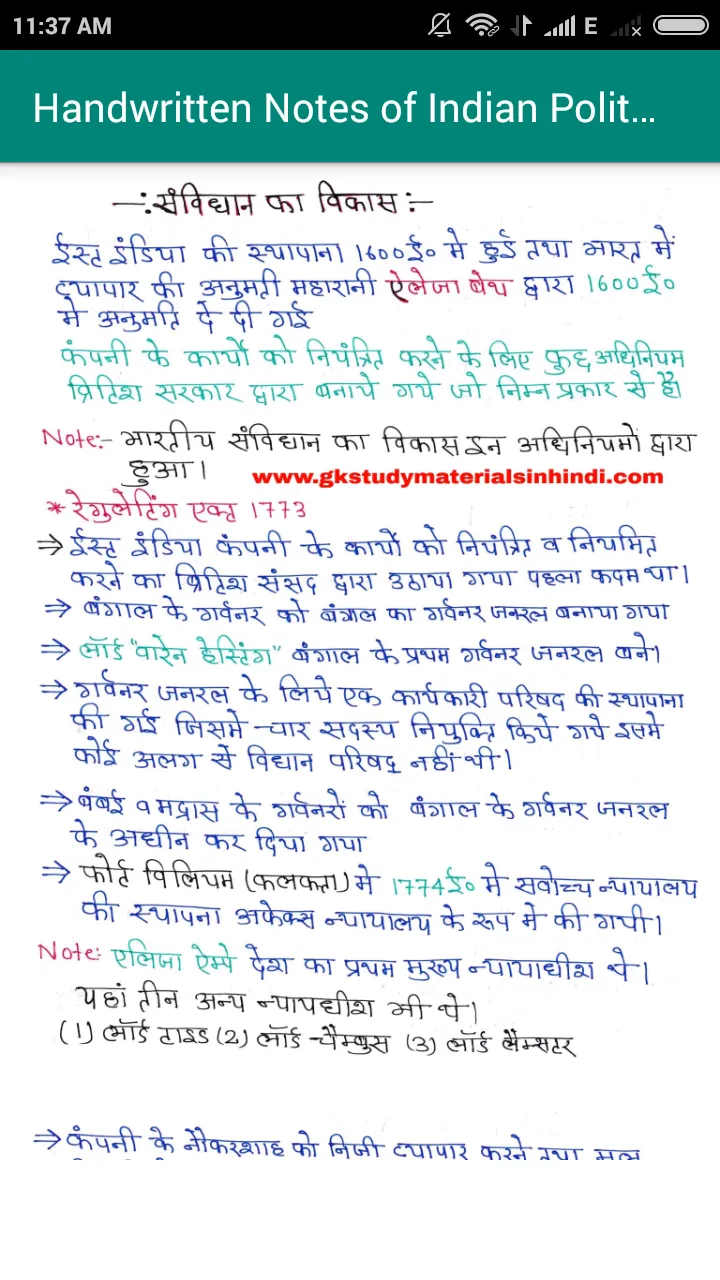 11:37 AM
E
Handwritten Notes of Indian Polit...
—:संविधान का विकास:—
ईस्ट इंडिया की स्थापाना 1600ई० मे हुई तथा भारत में
व्यापार की अनुमती महारानी ऐलेजा बेथ द्वारा 1600ई०
मे अनुमति दे दी गई
कंपनी के कार्यो को नियंत्रित करने के लिए कुछ अधिनियम
ब्रिटिश सरकार द्वारा बनाये गये जो निम्न प्रकार से है।
Note:- भारतीय संविधान का विकास इन अधिनियमो द्वारा
हुआ।
www.gkstudymaterialsinhindi.com
* रेगुलेटिंग एक्ट 1773
⇒ ईस्ट इंडिया कंपनी के कार्यो को नियंत्रित व नियमित
करने का ब्रिटिश संसद द्वारा उठाया गया पहला कदम था।
⇒ बंगाल के गर्वनर को बंगाल का गर्वनर जनरल बनाया गया
⇒ लॉर्ड "वारेन हेस्टिंग" बंगाल के प्रथम गर्वनर जनरल बने।
⇒ गर्वनर जनरल के लिये एक कार्यकारी परिषद की स्थापाना
की गई जिसमे चार सदस्य नियुक्ति किये गये इसमे
कोई अलग से विधान परिषद नहीं थी।
⇒ बंबई व मद्रास के गर्वनरों को बंगाल के गर्वनर जनरल
के अधीन कर दिया गया
⇒ फोर्ट विलियम (कलकता) मे 1774ई० मे सवोच्च न्यायालय
की स्थापना अफेक्स न्यायालय के रूप मे की गयी।
Note: एलिजा ऐम्पे देश का प्रथम मुख्य न्यायाधीश थे।
यहां तीन अन्य न्यायधीश भी थे।
(1) लॉर्ड टाइड (2) लॉर्ड चैम्बुस (3) लॉर्ड लैम्सटर
⇒ कंपनी के नौकरशाह को निजी व्यापार करने तथा